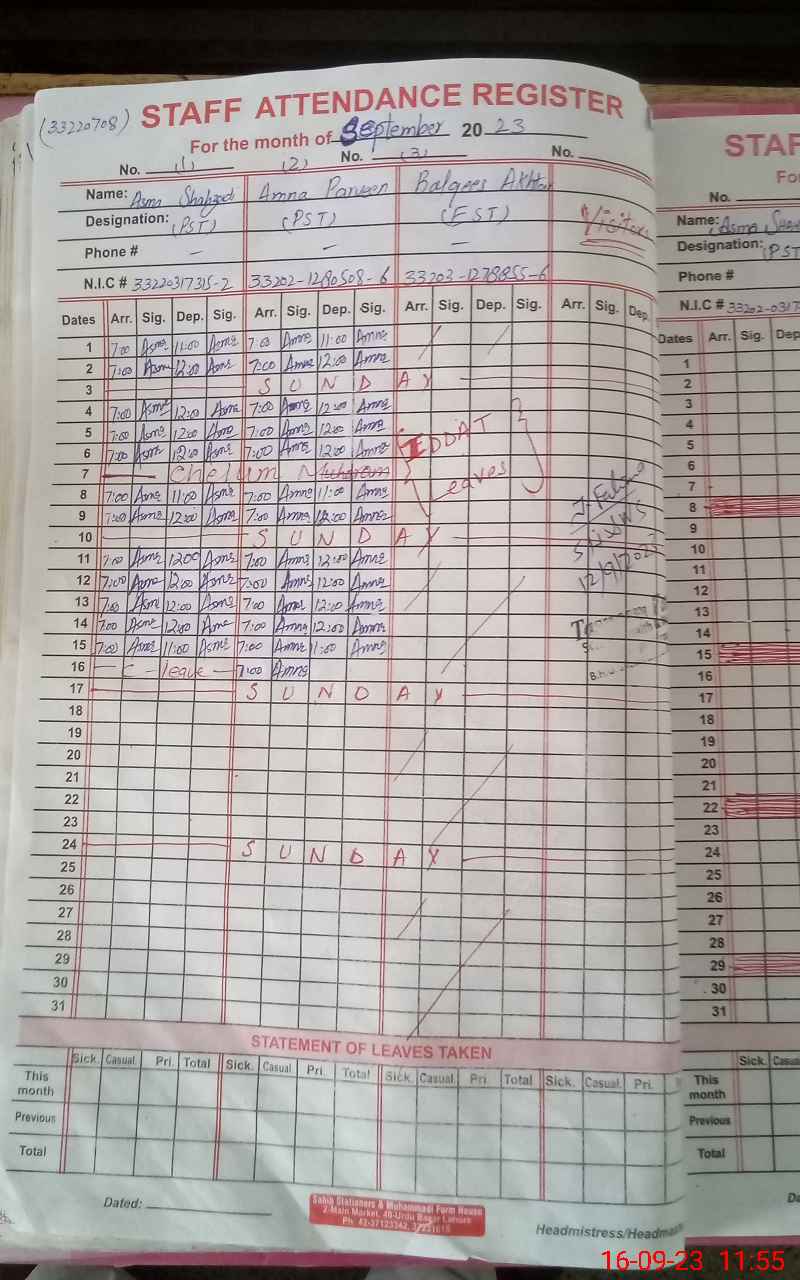 (33220708)
STAFF ATTENDANCE REGISTER
For the month of September 20 23
No. (1) (2) No. (3) No.
Name: Asma Shahzad Amna Parveen Balqees Akhtar
Designation: (PST) (PST) (EST) Visitors
Phone # – – –
N.I.C # 33220317315-2 33202-1280508-6 33202-1278855-6
Dates Arr. Sig. Dep. Sig. Arr. Sig. Dep. Sig. Arr. Sig. Dep. Sig. Arr. Sig. Dep.
1 7:00 Asma 11:00 Asma 7:00 Amna 11:00 Amna
2 7:00 Asma 12:00 Asma 7:00 Amna 12:00 Amna
3 SUNDAY
4 7:00 Asma 12:00 Asma 7:00 Amna 12:00 Amna
5 7:00 Asma 12:00 Asma 7:00 Amna 12:00 Amna
6 7:00 Asma 12:00 Asma 7:00 Amna 12:00 Amna EDDAT
7 Chelum Muharam Leaves
8 7:00 Asma 11:00 Asma 7:00 Amna 11:00 Amna
9 7:00 Asma 12:00 Asma 7:00 Amna 12:00 Amna
10 SUNDAY
11 7:00 Asma 12:00 Asma 7:00 Amna 12:00 Amna
12 7:00 Asma 12:00 Asma 7:00 Amna 12:00 12/9/2023
13 7:00 Asma 12:00 Asma 7:00 Amna 12:00 Amna
14 7:00 Asma 12:00 Asma 7:00 Amna 12:00 Amna
15 7:00 Asma 11:00 Asma 7:00 Amna 11:00 Amna
16 C-leave 7:00 Amna
17 SUNDAY
18
19
20
21
22
23
24 SUNDAY
25
26
27
28
29
30
31
STATEMENT OF LEAVES TAKEN
Sick. Casual. Pri. Total Sick. Casual. Pri. Total Sick. Casual. Pri. Total Sick. Casual. Pri.
This month
Previous
Total
Dated:
Sabih Stationers & Muhammadi Form House
2-Main Market, 40-Urdu Bazar Lahore
Ph: 42-37123342, 37231615
Headmistress/Headma
STAF
Fo
No.
Name: Asma
Designation: (PST
Phone #
N.I.C # 33202-0317
Dates Arr. Sig. Dep
1
2
3
4
5
6
7
8
9
10
11
12
13
14
15
16
17
18
19
20
21
22
23
24
25
26
27
28
29
30
31
Sick. Casua
This month
Previous
Total
Da
16-09-23 11:55